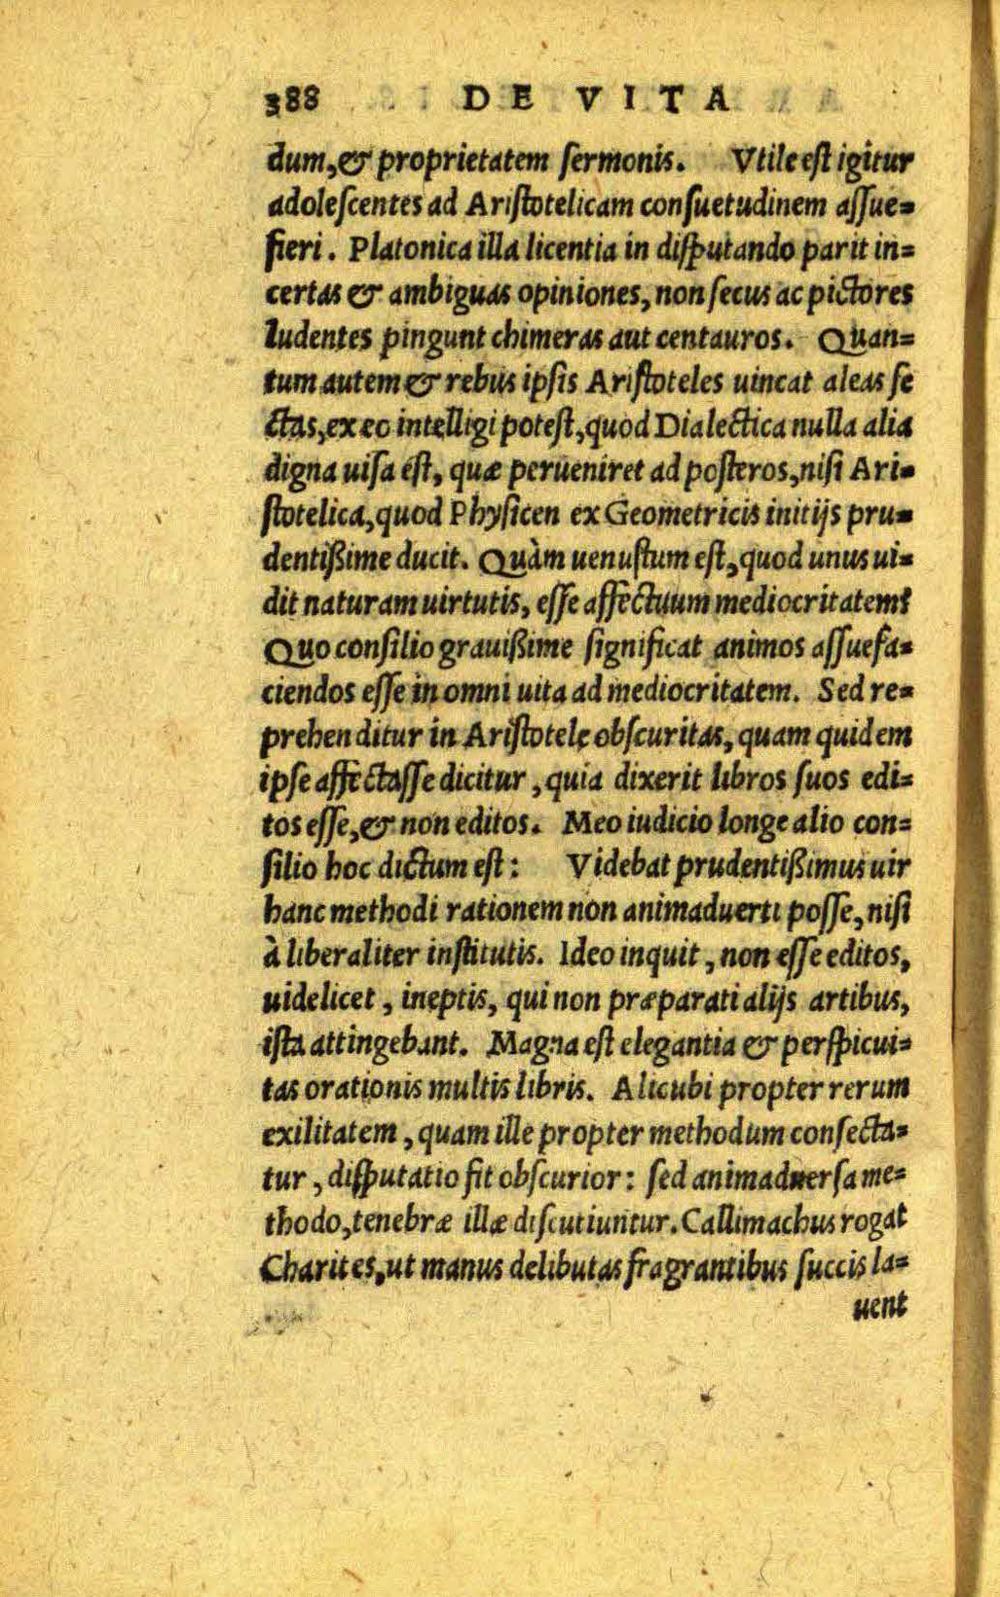 388 DE VITA
dum,& proprietatem ſermonis. Vtile eſt igitur
adoleſcentes ad Ariſtotelicam conſuetudinem aſſue=
fieri. Platonica illa licentia in diſputando parit in=
certas & ambiguas opiniones, non ſecus ac pictores
ludentes pingunt chimeras aut centauros. Quan=
tum autem & rebus ipſis Ariſtoteles uincat aleas ſe
ctas, ex eo intelligi poteſt, quod Dialectica nulla alia
digna uiſa eſt, quæ perueniret ad poſteros, niſi Ari=
ſtotelica, quod Phyſicen ex Geometricis initijs pru=
dentißime ducit. Quàm uenuſtum eſt, quod unus ui=
dit naturam uirtutis, eſſe affectuum mediocritatem?
Quo conſilio grauißime ſignificat animos aſſuefa=
ciendos eſſe in omni uita ad mediocritatem. Sed re=
prehenditur in Ariſtotele obſcuritas, quam quidem
ipſe affectaſſe dicitur, quia dixerit libros ſuos edi=
tos eſſe, & non editos. Meo iudicio longe alio con=
ſilio hoc dictum eſt: Videbat prudentißimus uir
hanc methodi rationem non animaduerti poſſe, niſi
à liberaliter inſtitutis. Ideo inquit, non eſſe editos,
uidelicet, ineptis, qui non præparati alijs artibus,
iſta attingebant. Magna eſt elegantia & perſpicui=
tas orationis multis libris. Alicubi propter rerum
exilitatem, quam ille propter methodum conſecta=
tur, diſputatio fit obſcurior: ſed animaduerſa me=
thodo, tenebræ illæ diſcutiuntur. Callimachus rogat
Charites, ut manus delibutas fragrantibus ſuccis la=
uent